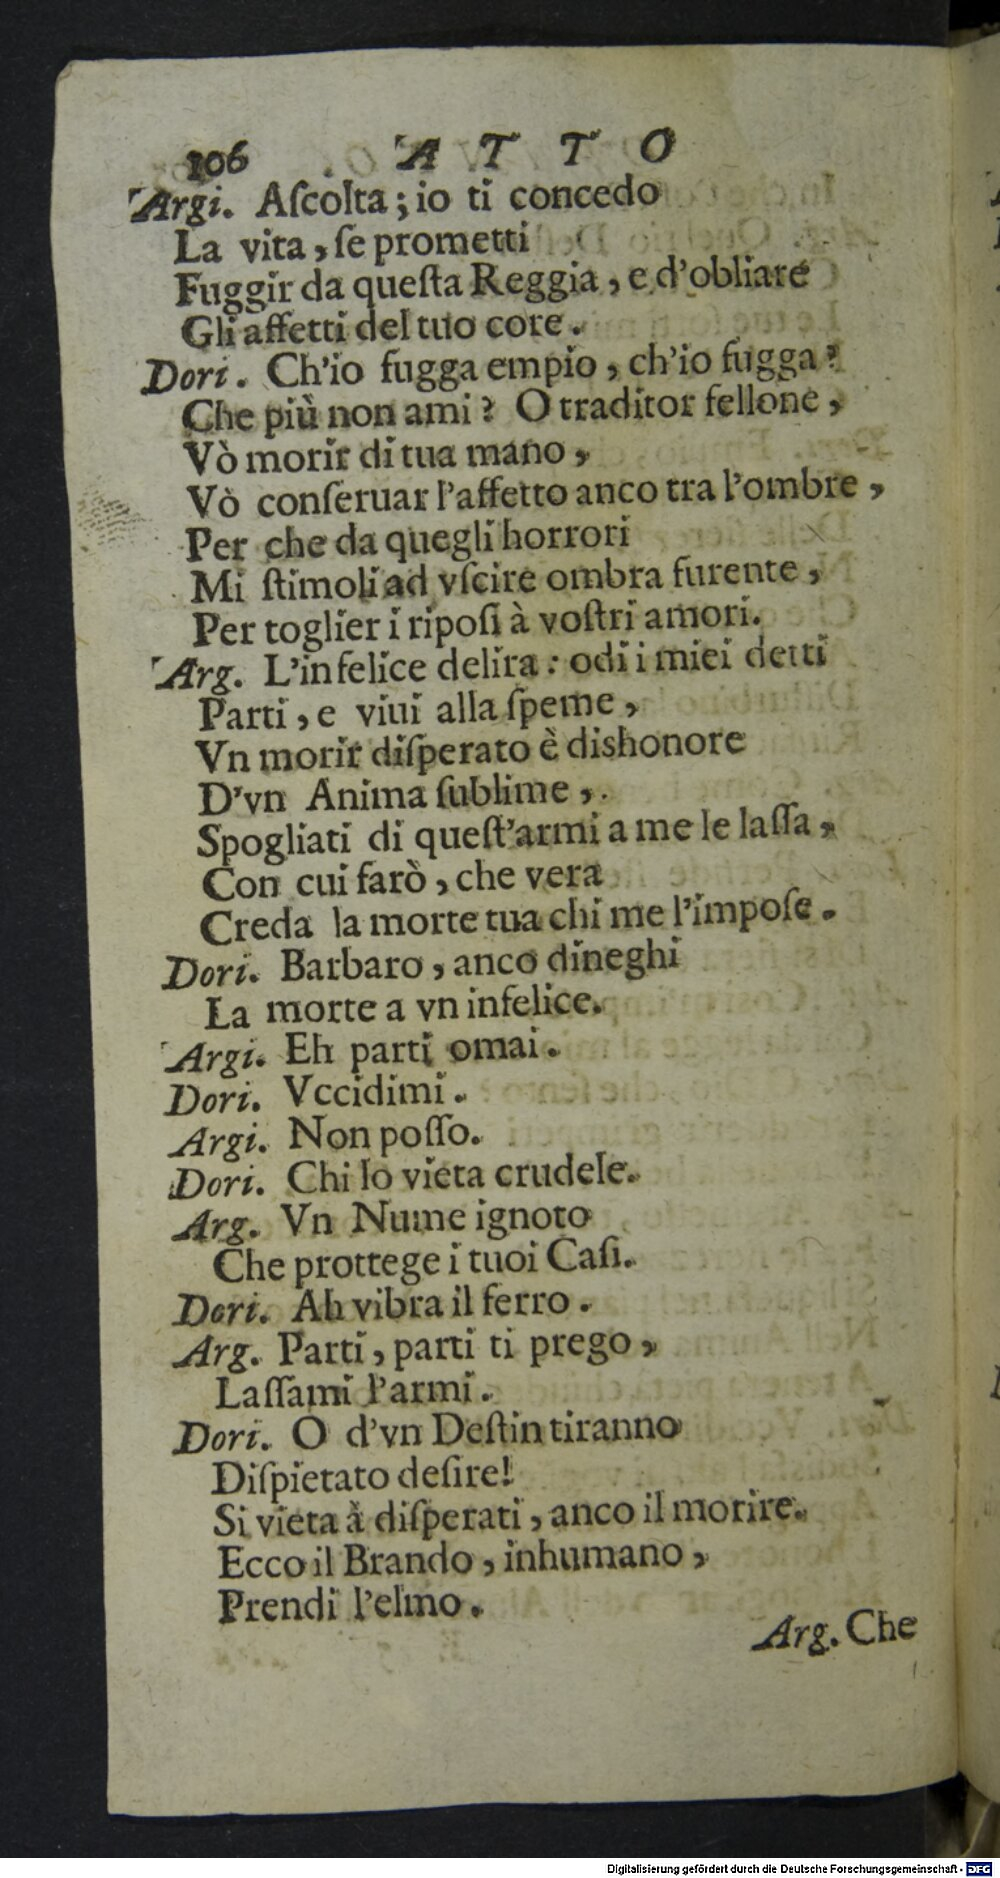 106 ATTO
Argi. Aſcolta; io ti concedo
La vita, ſe prometti
Fuggir da queſta Reggia, e d'obliare
Gli affetti del tuo core.
Dori. Ch'io fugga empio, ch'io fugga?
Che più non ami? O traditor fellone,
Vò morir di tua mano,
Vò conſeruar l'affetto anco tra l'ombre,
Per che da quegli horrori
Mi ſtimoli ad vſcire ombra furente,
Per toglier i ripoſi à voſtri amori.
Arg. L'infelice delira: odi i miei detti
Parti, e viui alla ſpeme,
Vn morir diſperato è dishonore
D'vn Anima ſublime,
Spogliati di queſt'armi a me le laſſa,
Con cui farò, che vera
Creda la morte tua chi me l'impoſe.
Dori. Barbaro, anco dineghi
La morte a vn infelice.
Argi. Eh parti omai.
Dori. Vccidimi.
Argi. Non poſſo.
Dori. Chi lo vieta crudele.
Arg. Vn Nume ignoto
Che prottege i tuoi Caſi.
Dori. Ah vibra il ferro.
Arg. Parti, parti ti prego,
Laſſami l'armi.
Dori. O d'vn Deſtin tiranno
Diſpietato deſire!
Si vieta à diſperati, anco il morire.
Ecco il Brando, inhumano,
Prendi l'elmo.
Arg. Che
Digitalisierung gefördert durch die Deutsche Forschungsgemeinschaft - DFG